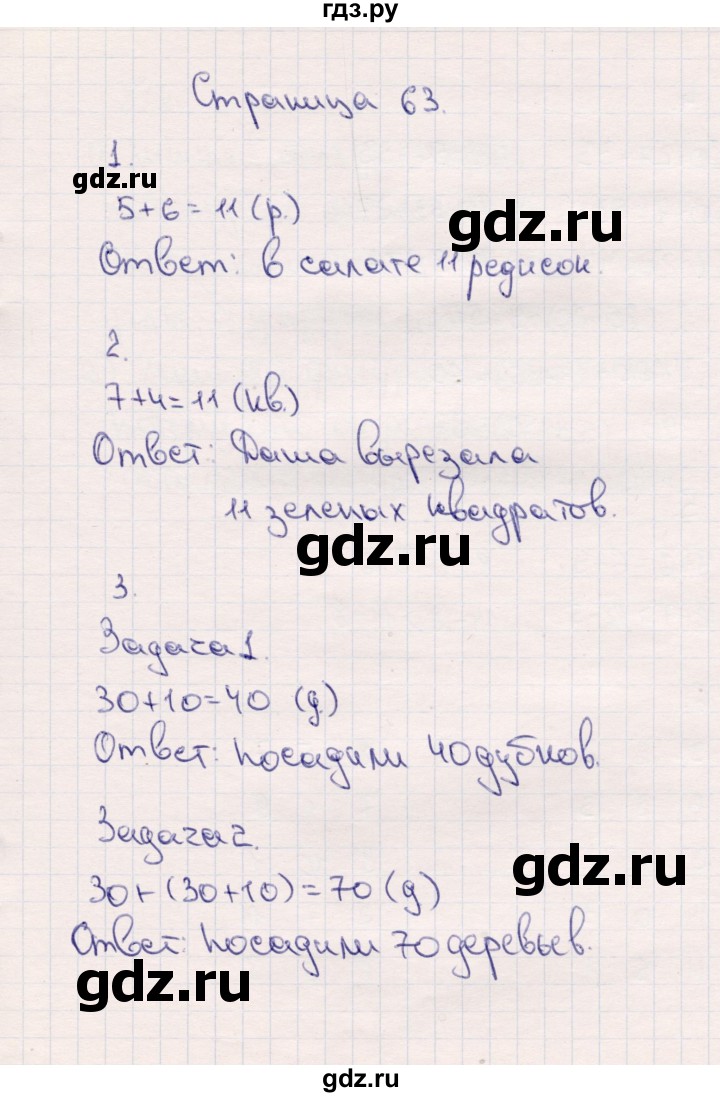 гдз.ру
Страница 63.
1.
gdz.ru
5+6=11 (р.)
gdz.ru
Ответ: в салате 11 редисок.
2.
7+4=11 (кв.)
Ответ: Даша вырезала
11 зеленых квадратов.
gdz.ru
3.
Задача 1.
30+10=40 (д.)
Ответ: посадили 40 дубков.
Задача 2.
gdz.ru
30+(30+10)=70 (д)
Ответ: посадили 70 деревьев.
gdz.ru
gdz.ru